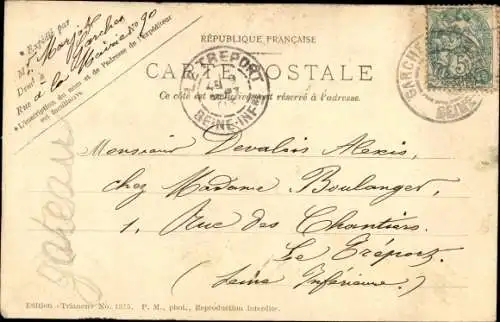 * Expédié par
M
Demt à Garches
Rue de la Mairie No 90
* L'inscription du nom et de l'adresse de l'expéditeur
est facultative.
RÉPUBLIQUE FRANÇAISE
CARTE POSTALE
Ce côté est exclusivement réservé à l'adresse.
LE TREPORT
SEINE-INFRE
GARCHES
SEINE
5
gateau
Monsieur Devalois Alexis,
chez Madame Boulanger,
1, Rue des Chantiers.
Le Tréport.
(Seine Inférieure.)
Edition «Trianon» No. 1375. P. M., phot., Reproduction interdite.